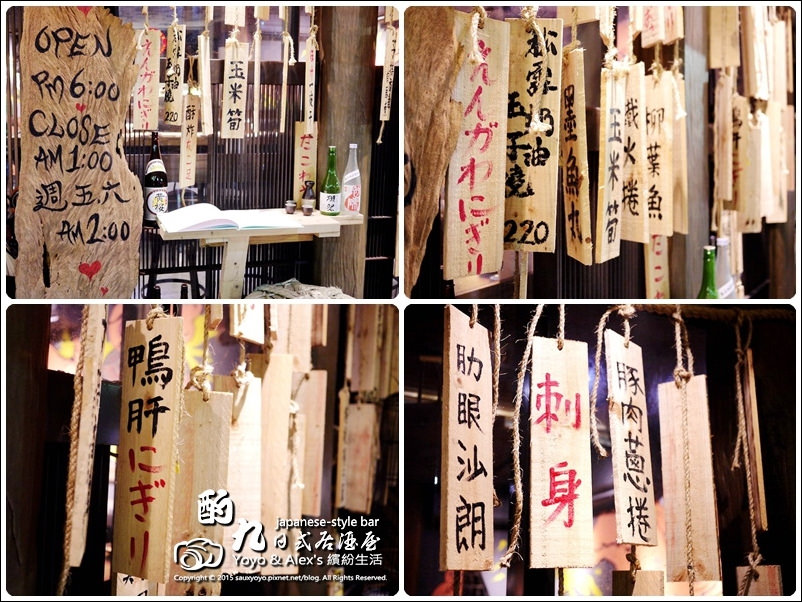 OPEN
PM 6:00
CLOSE
AM 1:00
週五六
AM 2:00
えんがわにぎり
松露奶油
玉子燒
220
玉米筍
たこわさ
えんがわにぎり
松露奶油
玉子燒
220
魚丸
玉米筍
鐵火捲
柳葉魚
たこわ
鴨肝にぎり
肋眼沙朗
刺身
豚肉蔥捲
酌九日式居酒屋
japanese-style bar
Yoyo & Alex's 繽紛生活
Copyright © 2015 sauxyoyo.pixnet.net/blog. All Rights Reserved.